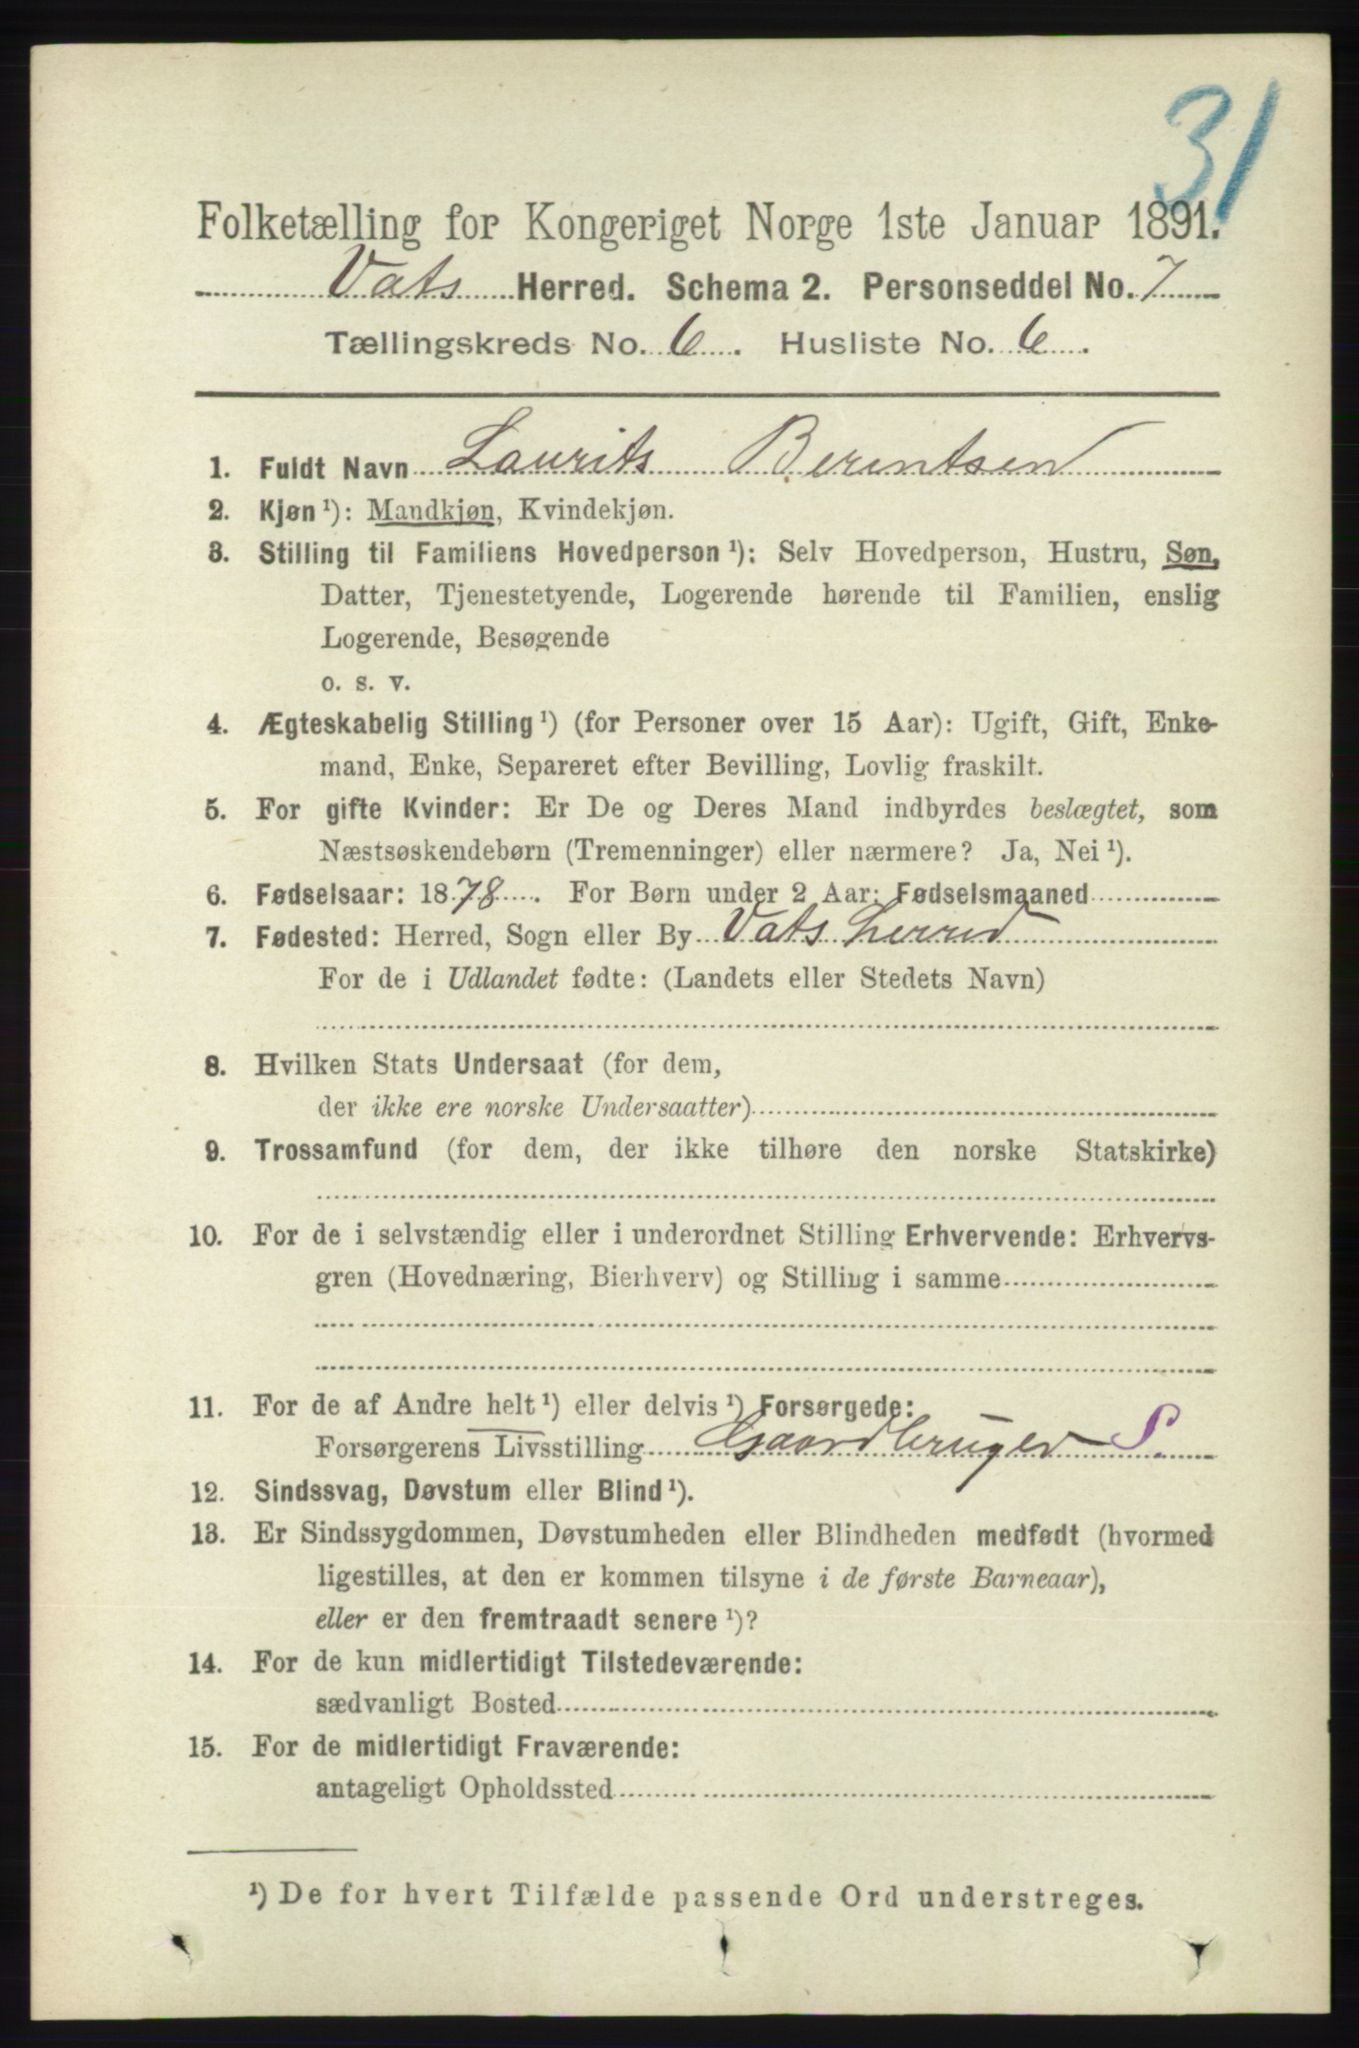 31
Folketælling for Kongeriget Norge 1ste Januar 1891.
Vats Herred. Schema 2. Personseddel No. 7
Tællingskreds No. 6. Husliste No. 6.
1. Fuldt Navn Laurits Berentsen
2. Kjøn ¹): Mandkjøn, Kvindekjøn.
3. Stilling til Familiens Hovedperson ¹): Selv Hovedperson, Hustru, Søn,
Datter, Tjenestetyende, Logerende hørende til Familien, enslig
Logerende, Besøgende
o. s. v.
4. Ægteskabelig Stilling ¹) (for Personer over 15 Aar): Ugift, Gift, Enke-
mand, Enke, Separeret efter Bevilling, Lovlig fraskilt.
5. For gifte Kvinder: Er De og Deres Mand indbyrdes beslægtet, som
Næstsøskendebørn (Tremenninger) eller nærmere? Ja, Nei ¹).
6. Fødselsaar: 1878. For Børn under 2 Aar: Fødselsmaaned
7. Fødested: Herred, Sogn eller By Vats herred
For de i Udlandet fødte: (Landets eller Stedets Navn)
8. Hvilken Stats Undersaat (for dem,
der ikke ere norske Undersaatter)
9. Trossamfund (for dem, der ikke tilhøre den norske Statskirke)
10. For de i selvstændig eller i underordnet Stilling Erhvervende: Erhvervs-
gren (Hovednæring, Bierhverv) og Stilling i samme
11. For de af Andre helt ¹) eller delvis ¹) Forsørgede:
Forsørgerens Livsstilling Gaardbruger S.
12. Sindssvag, Døvstum eller Blind ¹).
13. Er Sindssygdommen, Døvstumheden eller Blindheden medfødt (hvormed
ligestilles, at den er kommen tilsyne i de første Barneaar),
eller er den fremtraadt senere ¹)?
14. For de kun midlertidigt Tilstedeværende:
sædvanligt Bosted
15. For de midlertidigt Fraværende:
antageligt Opholdssted
¹) De for hvert Tilfælde passende Ord understreges.